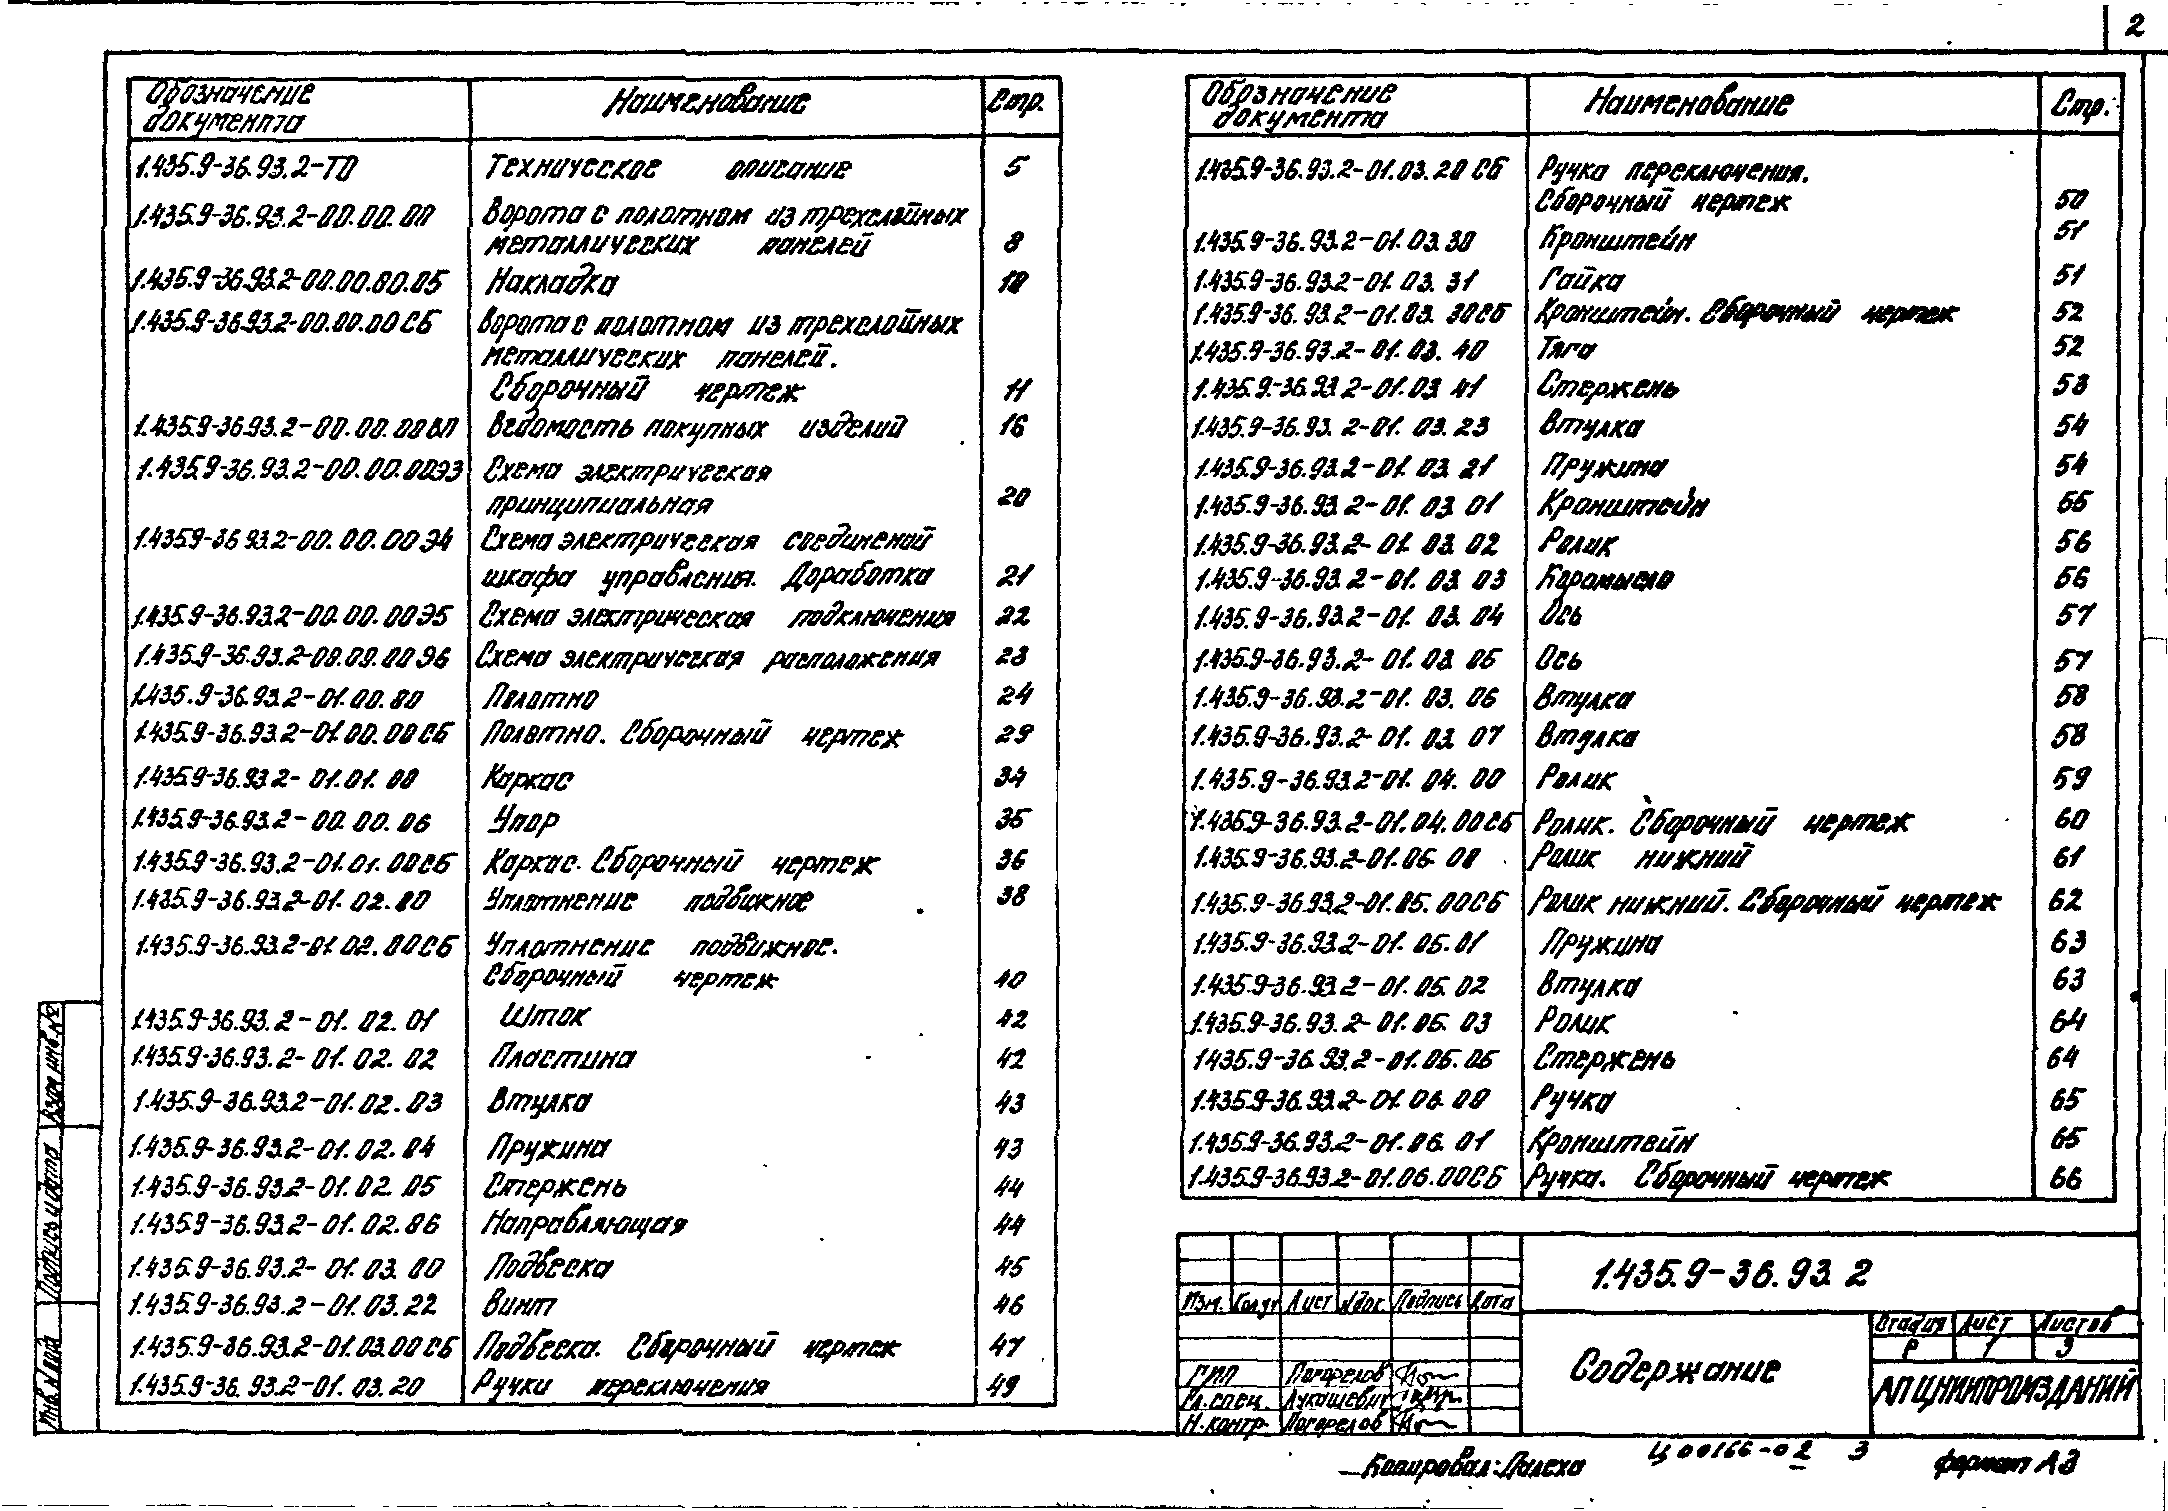 2
Обозначение документа Наименование Стр.
1.435.9-36.93.2-ТО Техническое описание 5
1.435.9-36.93.2-00.00.00 Ворота с полотном из трехслойных
металлических панелей 8
1.435.9-36.93.2-00.00.00.05 Накладка 10
1.435.9-36.93.2-00.00.00СБ Ворота с полотном из трехслойных
металлических панелей.
Сборочный чертеж 11
1.435.9-36.93.2-00.00.00ВП Ведомость покупных изделий 16
1.435.9-36.93.2-00.00.00Э3 Схема электрическая
принципиальная 20
1.435.9-36.93.2-00.00.00Э4 Схема электрическая соединений
шкафа управления. Доработка 21
1.435.9-36.93.2-00.00.00Э5 Схема электрическая подключения 22
1.435.9-36.93.2-00.00.00Э6 Схема электрическая расположения 23
1.435.9-36.93.2-01.00.00 Полотно 24
1.435.9-36.93.2-01.00.00СБ Полотно. Сборочный чертеж 29
1.435.9-36.93.2-01.01.00 Каркас 34
1.435.9-36.93.2-00.00.06 Упор 35
1.435.9-36.93.2-01.01.00СБ Каркас. Сборочный чертеж 36
1.435.9-36.93.2-01.02.00 Уплотнение подвижное 38
1.435.9-36.93.2-01.02.00СБ Уплотнение подвижное.
Сборочный чертеж 40
1.435.9-36.93.2-01.02.01 Шток 42
1.435.9-36.93.2-01.02.02 Пластина 42
1.435.9-36.93.2-01.02.03 Втулка 43
1.435.9-36.93.2-01.02.04 Пружина 43
1.435.9-36.93.2-01.02.05 Стержень 44
1.435.9-36.93.2-01.02.06 Направляющая 44
1.435.9-36.93.2-01.03.00 Подвеска 45
1.435.9-36.93.2-01.03.22 Винт 46
1.435.9-36.93.2-01.03.00СБ Подвеска. Сборочный чертеж 47
1.435.9-36.93.2-01.03.20 Ручки переключения 49
Обозначение документа Наименование Стр.
1.435.9-36.93.2-01.03.20 СБ Ручка переключения.
Сборочный чертеж 50
1.435.9-36.93.2-01.03.30 Кронштейн 51
1.435.9-36.93.2-01.03.31 Гайка 51
1.435.9-36.93.2-01.03.30СБ Кронштейн. Сборочный чертеж 52
1.435.9-36.93.2-01.03.40 Тяга 52
1.435.9-36.93.2-01.03 41 Стержень 53
1.435.9-36.93.2-01.03.23 Втулка 54
1.435.9-36.93.2-01.03.21 Пружина 54
1.435.9-36.93.2-01.03.01 Кронштейн 55
1.435.9-36.93.2-01.03.02 Ролик 56
1.435.9-36.93.2-01.03.03 Коромысло 56
1.435.9-36.93.2-01.03.04 Ось 57
1.435.9-36.93.2-01.03.05 Ось 57
1.435.9-36.93.2-01.03.06 Втулка 58
1.435.9-36.93.2-01.03.07 Втулка 58
1.435.9-36.93.2-01.04.00 Ролик 59
1.435.9-36.93.2-01.04.00СБ Ролик. Сборочный чертеж 60
1.435.9-36.93.2-01.05.00 Ролик нижний 61
1.435.9-36.93.2-01.05.00СБ Ролик нижний. Сборочный чертеж 62
1.435.9-36.93.2-01.05.01 Пружина 63
1.435.9-36.93.2-01.05.02 Втулка 63
1.435.9-36.93.2-01.05.03 Ролик 64
1.435.9-36.93.2-01.05.05 Стержень 64
1.435.9-36.93.2-01.06.00 Ручка 65
1.435.9-36.93.2-01.06.01 Кронштейн 65
1.435.9-36.93.2-01.06.00СБ Ручка. Сборочный чертеж 66
Взам инв.№
Подпись и дата
Инв.№ подл
1.435.9-36.93.2
Изм. Кол.уч Лист №док Подпись Дата
Содержание
Стадия Лист Листов
Р 1 3
АП ЦНИИПРОМЗДАНИЙ
ГИП Погорелов
Гл.спец. Лукашевич
Н.контр. Погорелов
Копировал: Палеха Ц00166-02 3 формат А3